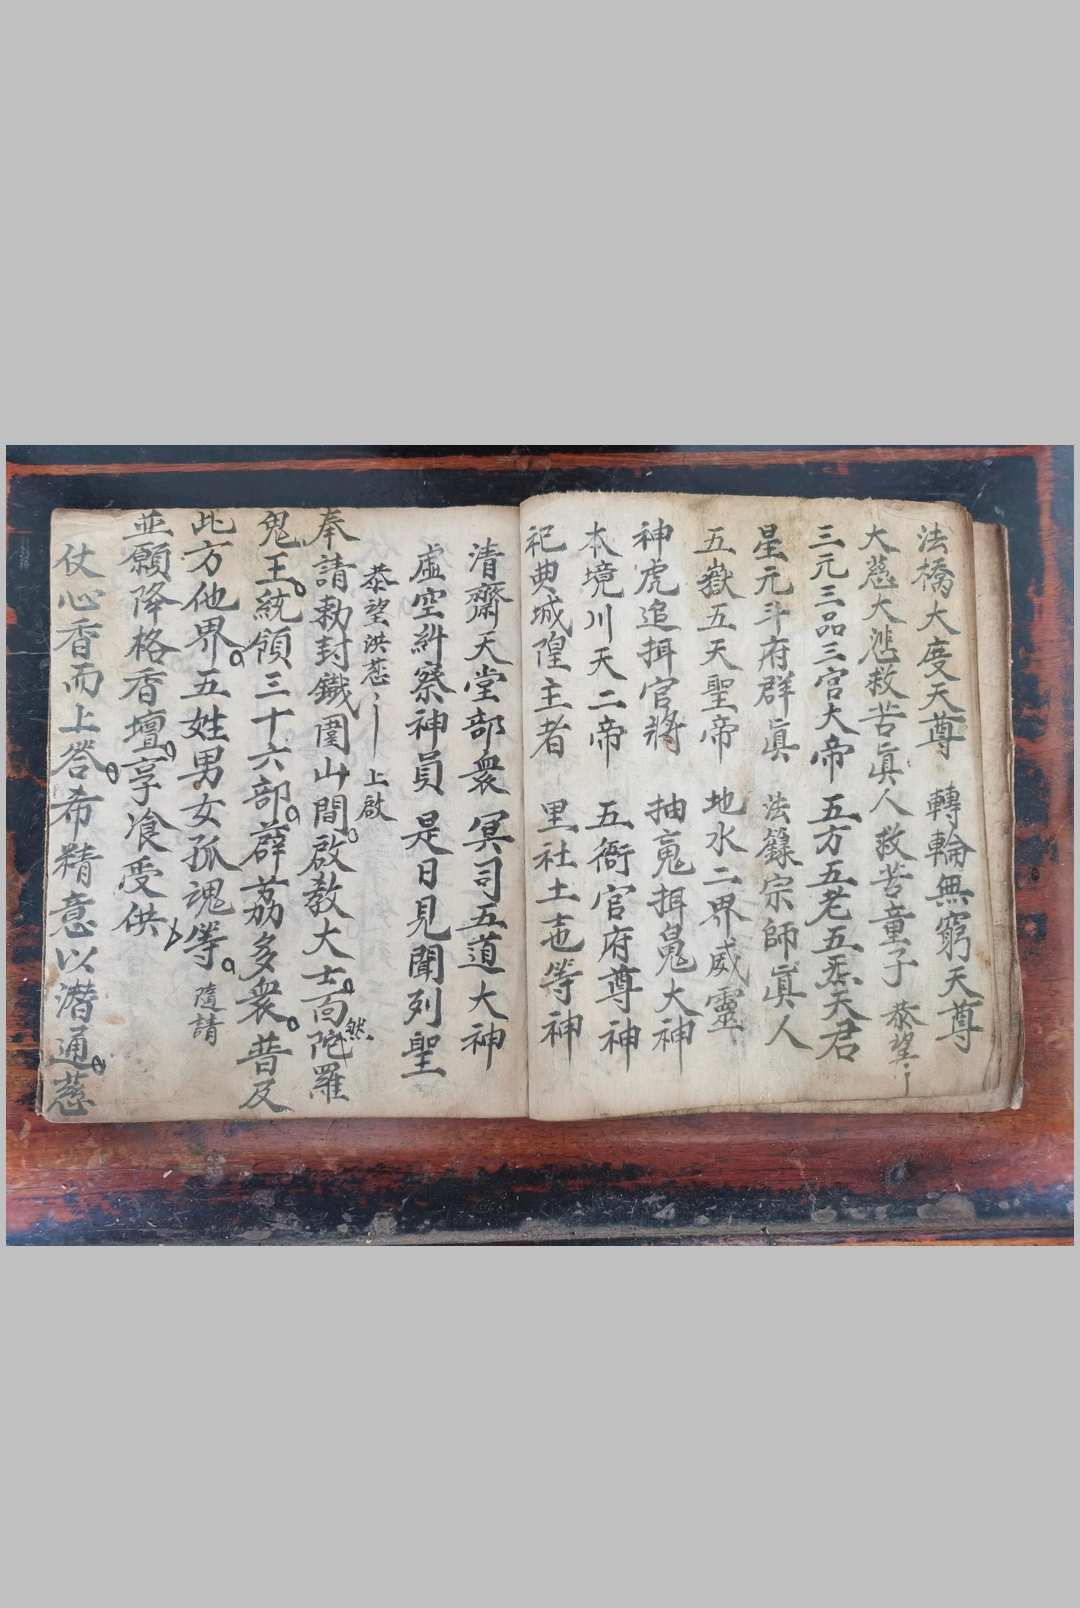 法橋大度天尊　轉輪無窮天尊
大慈大悲救苦眞人救苦童子　恭望
三元三品三宮大帝　五方五老五炁天君
星元斗府群眞　法籙宗師眞人
五嶽五天聖帝　地水二界威靈
神虎追揖官將　抽魂揖鬼大神
本境川天二帝　五衙官府尊神
祀典城隍主者　里社土等神
清齋天堂部衆　冥司五道大神
虛空糾察神員　是日見聞列聖
恭望洪慈　上啟
奉請勅封鐵圍山間啟教大士面然陀羅
鬼王統領三十六部薜荔多衆普及
此方他界五姓男女孤魂等　隨請
並願降格香壇享飡受供
仗心香而上答希精意以潛通慈